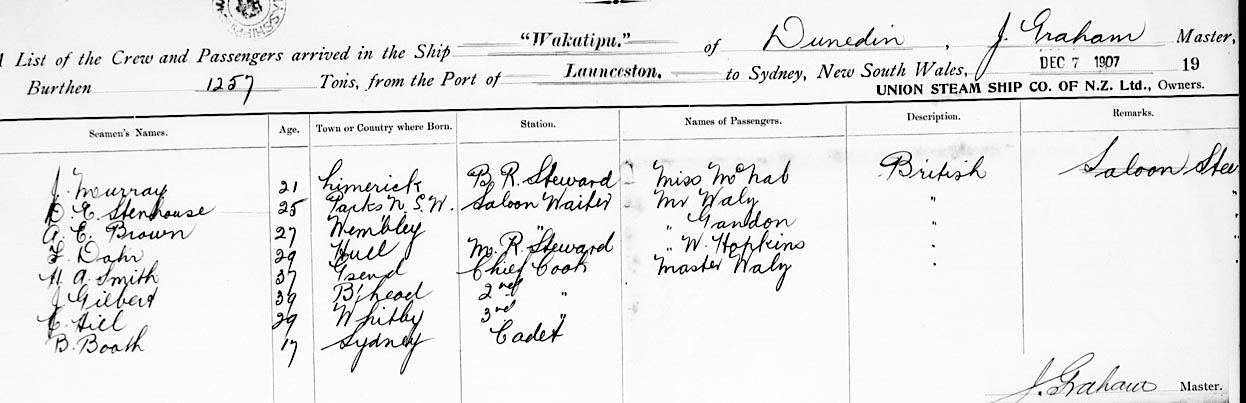 A List of the Crew and Passengers arrived in the Ship "Wakatipu." of Dunedin, J. Graham Master,
Burthen 1257 Tons, from the Port of Launceston. to Sydney, New South Wales, DEC 7 1907 19
UNION STEAM SHIP CO. OF N.Z. Ltd., Owners.
Seamen's Names. Age. Town or Country where Born. Station. Names of Passengers. Description. Remarks.
J. Murray 21 Limerick B. R. Steward Miss McNab British Saloon Stee
D. E. Stenhouse 25 Parks N. S. W. Saloon Waiter Mr Waly "
A. E. Brown 27 Wembley " " Gandon "
29 Hull M. R. Steward " W. Hopkins "
H. A. Smith 37 Gsend Chief Cook Master Waly "
J. Gilbert 39 B'head 2nd "
C. Hill 29 Whitby 3rd "
B. Booth 17 Sydney Cadet
J. Graham Master.